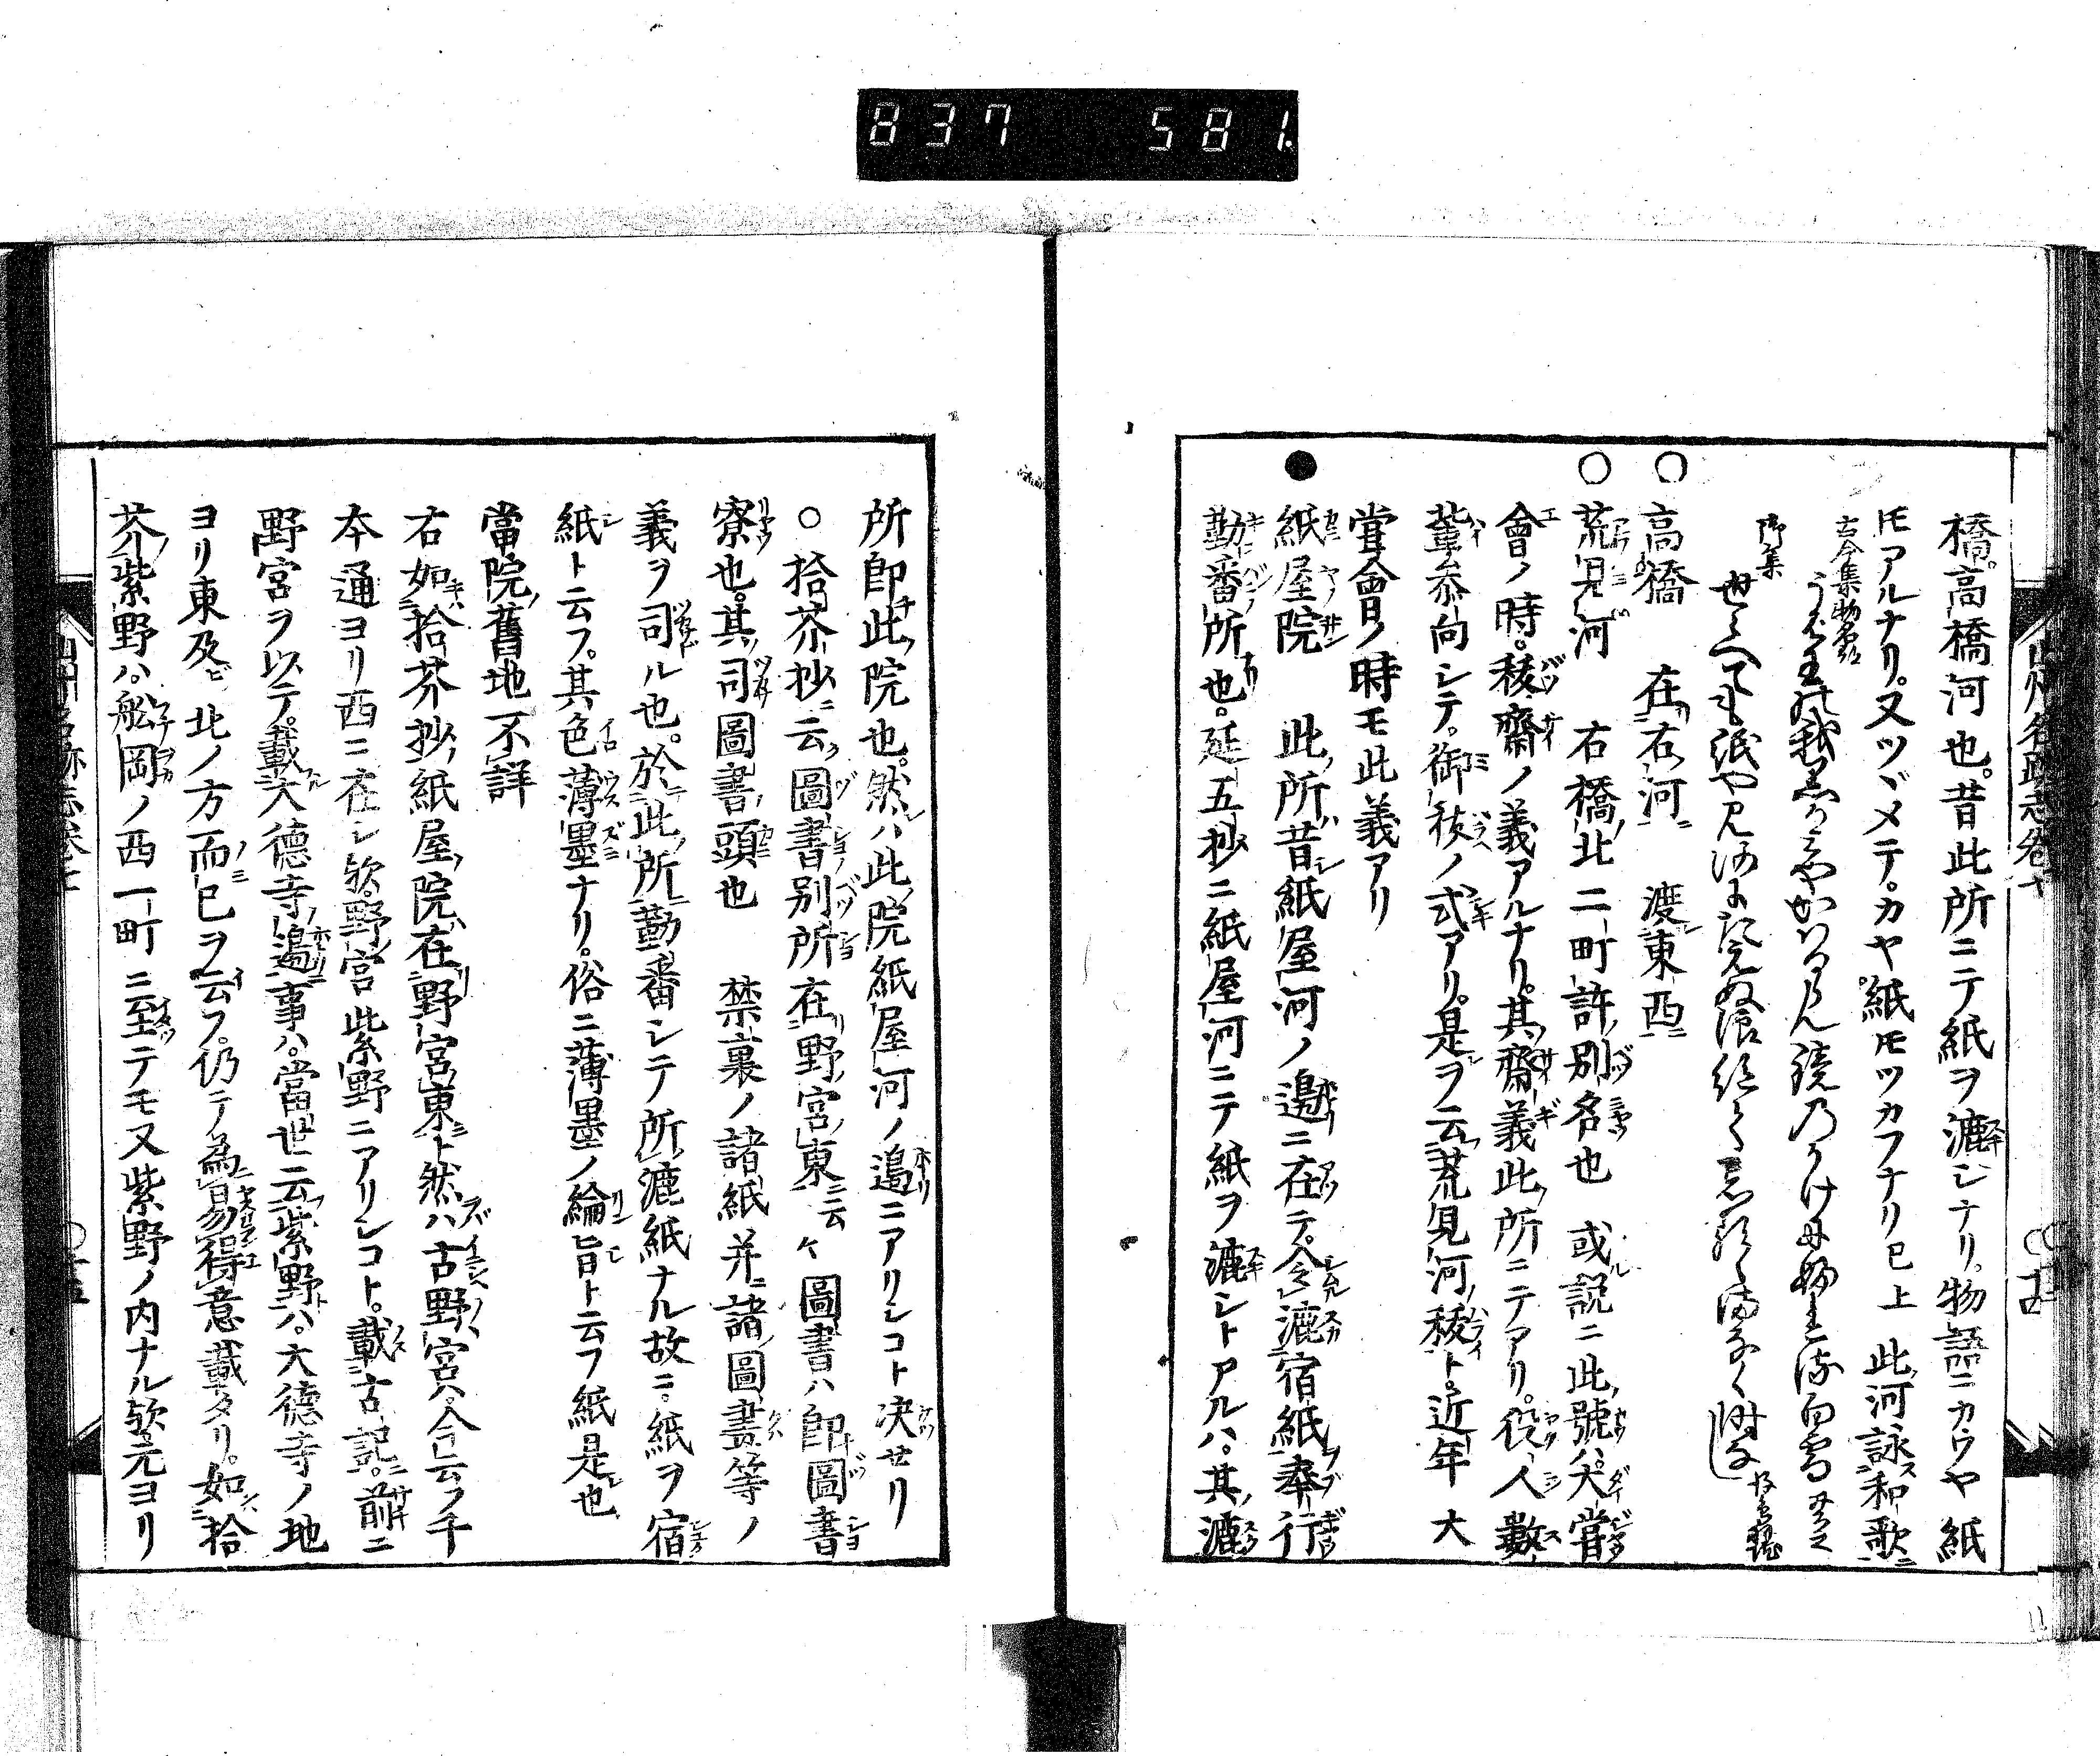 837 581
橋高橋河也。昔此所ニテ紙ヲ漉シナリ。物語ニカウヤ紙
𪜈アルナリ。又ツヾメテ。カヤ紙𪜈ツカフナリ已上 此河詠和歌
古今集物名
うば玉の我黒かみやかはるらん鏡のかけにふれる白雪
御集
高橋 在右河 渡東西
荒見河 右橋北二町許別名也 或説ニ此號ハ。大嘗
會ノ時。祓齋ノ義アルナリ。其齋義此所ニテアリ。役人數
輩參向シテ。御祓ノ式アリ。是ヲ云荒見河祓ト。近年大
嘗會ノ時モ此義アリ
紙屋院 此所昔紙屋河ノ邉ニ在テ。令漉宿紙奉行
勤番所也。延五抄ニ紙屋河ニテ紙ヲ漉シトアルハ。其漉
所卽此院也。然ハ此院紙屋河ノ邉ニアリシコト決せリ
○拾芥抄ニ云圖書別所在野宮東云云 圖書ハ卽圖書
寮也。其司圖書頭也 禁裏ノ諸紙并ニ諸圖畫等ノ
義ヲ司ル也。於此所勤番シテ所漉紙ナル故ニ。紙ヲ宿
紙ト云フ。其色薄墨ナリ。俗ニ薄墨ノ綸旨ト云フ紙是也
當院舊地不詳
右如拾芥抄紙屋院在野宮東ト然ハ古野宮ハ。今云フ千
本通ヨリ西ニ在シ歟。野宮紫野ニアリシコト。載古記。前ニ
野宮ヲ以テ。載大德寺邉事ハ。當世云紫野ハ。大德寺ノ地
ヨリ東及ビ北ノ方而已ヲ云フ。仍テ爲易得意載タリ。如拾
芥紫野ハ。舩岡ノ西一町ニ至テモ又紫野ノ内ナル歟。元ヨリ